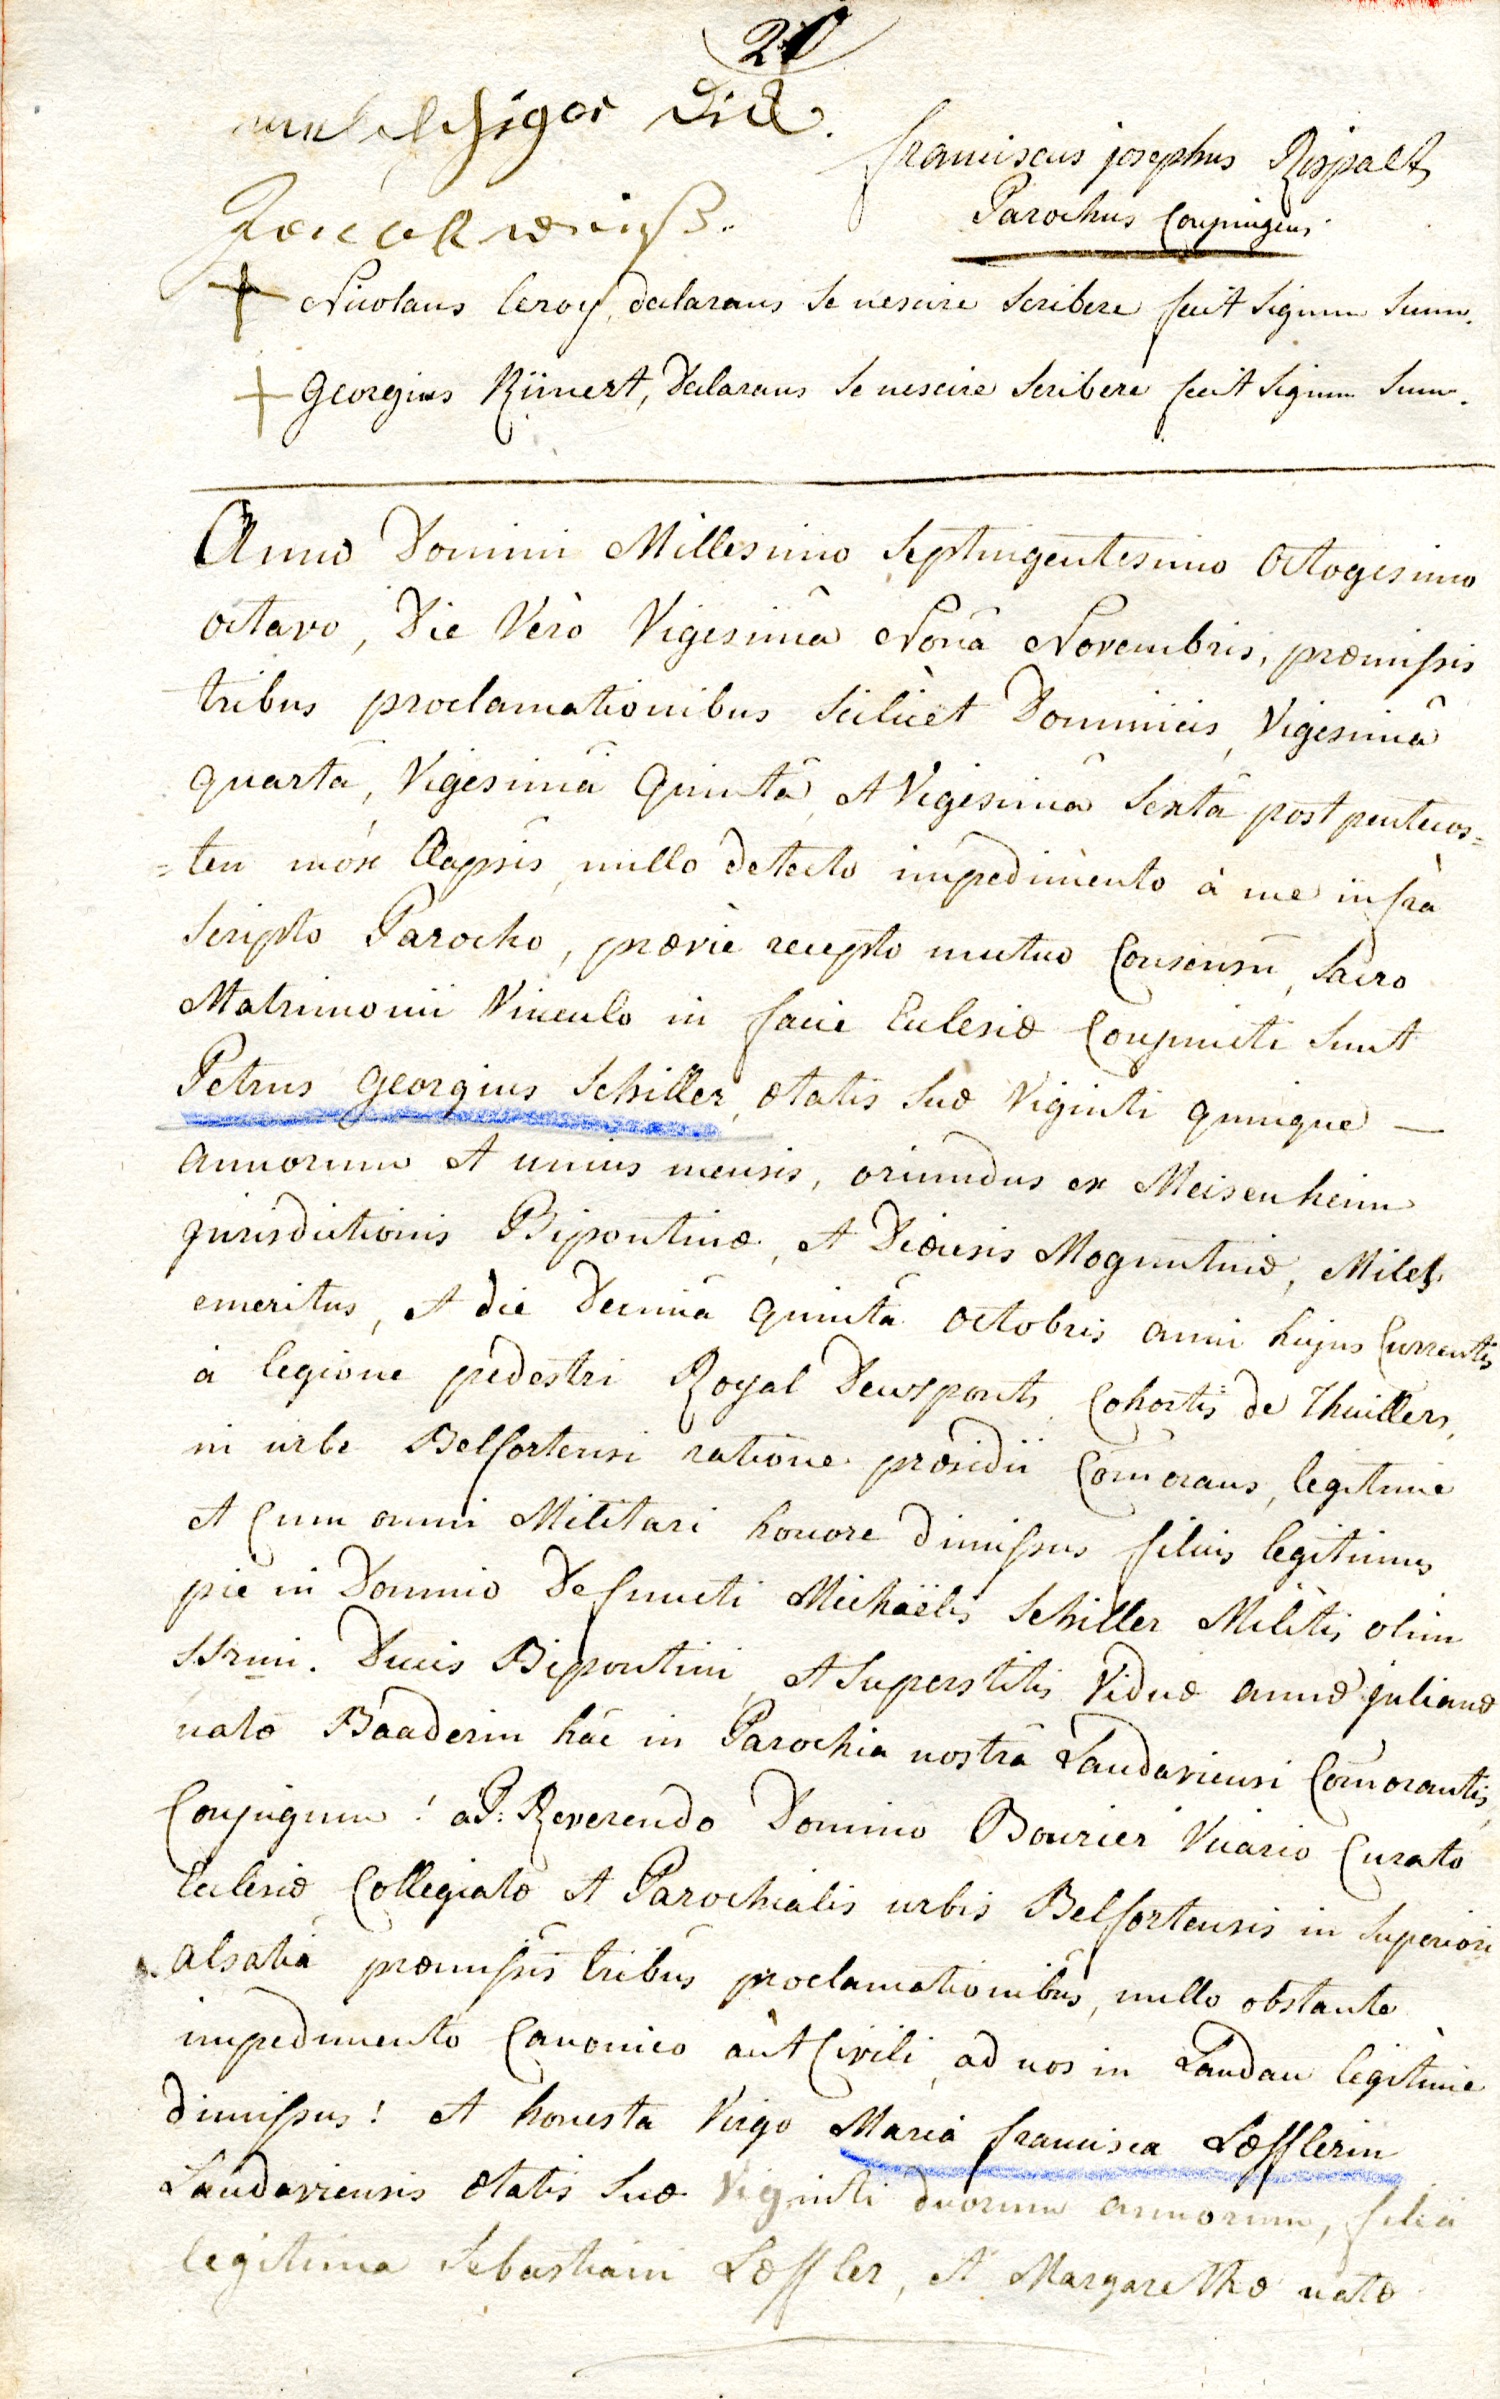 20
melchigor Dick.
franciscus josephus Rispalt
Parochus Conjungens
Nicolaus leroy, declarans se nescire scribere fecit signum suum.
Georgius Künert, Declarans se nescire scribere fecit signum suum.
Anno Domini Millesimo septingentesimo octogesimo
octavo, Die Verò Vigesimâ Nonâ Novembris, præmissis
tribus proclamationibus scilicèt Dominicis, Vigesimâ
quartâ, Vigesimâ Quintâ, et Vigesimâ sextâ post pentecos=
=ten mòx elapsis, nullo detecto impedimento à me infrà
scripto Parocho, præviè recepto mutuo Consensû, sacro
Matrimonii Vinculo in facie Eclesiæ Conjuncti sunt
Petrus georgius schiller, ætatis suæ Viginti quinque —
annorum et unius mensis, oriundus ex Meisenheim
jurisdictionis Bipontinæ, et Diœcesis Moguntinæ, Miles
emeritus, et die Decimâ quintâ octobris anni hujus Currentis
à legione pedestri Royal Deuxponts, Cohortis de Thuillers,
in urbe Belfortensi ratione præsidii Com̄orans, legitime
et Cum omni Militari honore dimissus filius legitimus
pie in Domino Defuncti Michaëlis schiller Militis olim
ssrmi. Ducis Bipontini, et superstitis Viduæ annæ julianæ
natæ Baaderin hâc in Parochia nostrâ Landaviensi Com̄orantis,
Conjugum! a P: Reverendo Domino Bourier Vicario Curato
Eclesiæ Collegiatæ et Parochialis urbis Belfortensis in superiori
alsatiâ præmissis tribus proclamationibus, nullo obstante
impedimento Canonico aùt Civili, ad nos in Landau legitime
dimissus! et honesta Virgo Maria francisca Læfflerin
Landaviensis ætatis suæ Viginti duorum annorum, filia
legitima sebastiani Læffler, et Margarethæ natæ